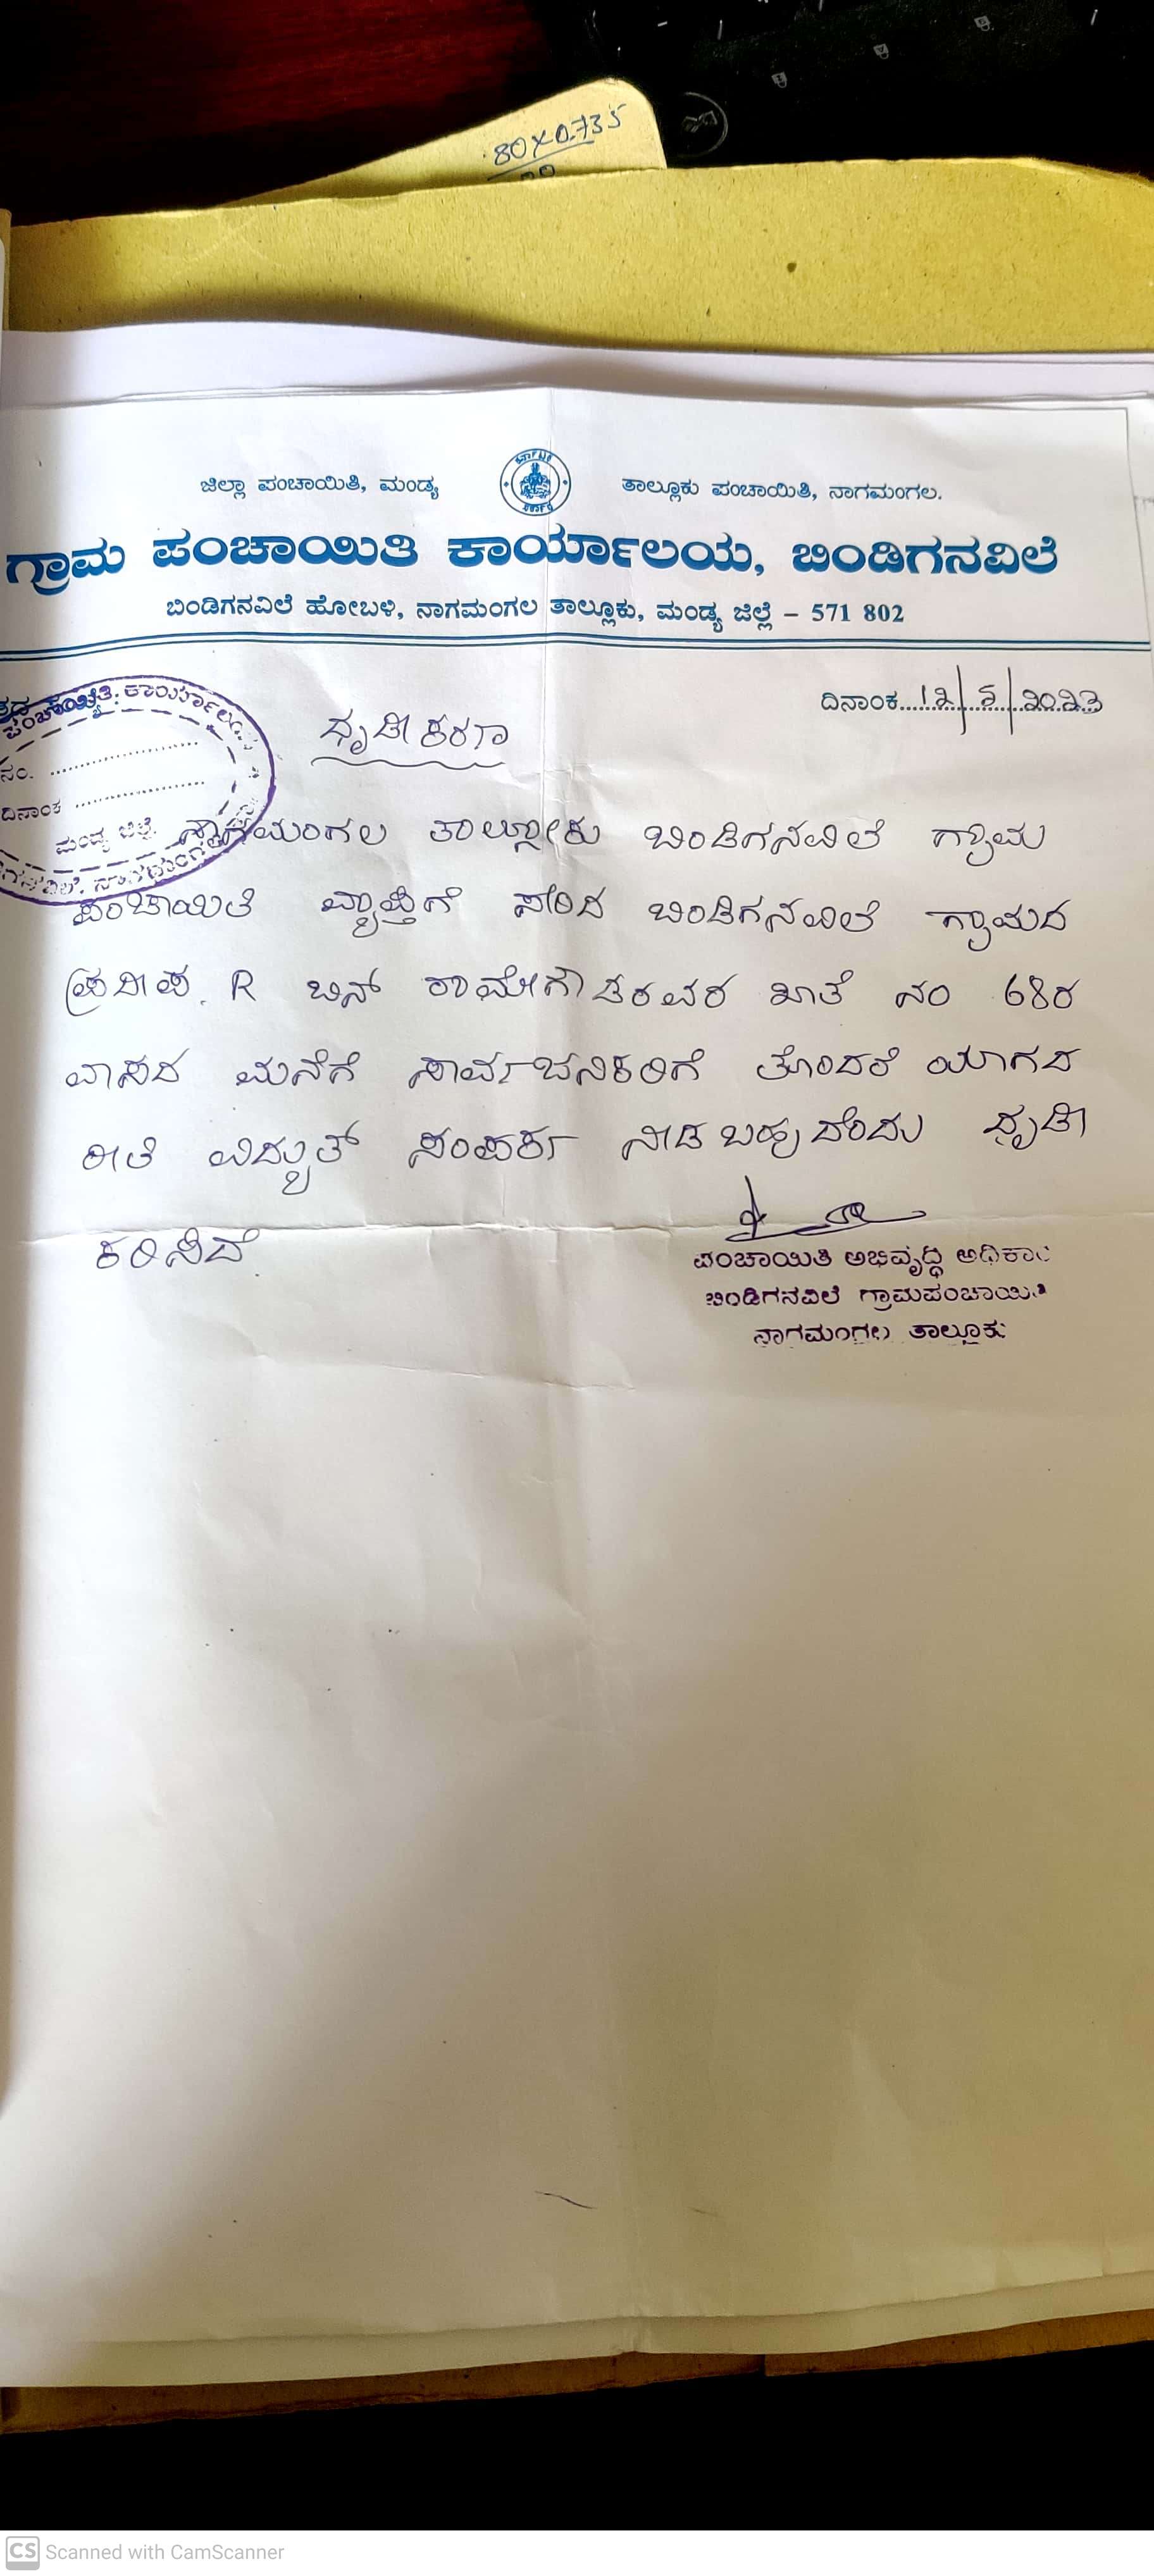 80X0.735
ಜಿಲ್ಲಾ ಪಂಚಾಯಿತಿ, ಮಂಡ್ಯ
ತಾಲ್ಲೂಕು ಪಂಚಾಯಿತಿ, ನಾಗಮಂಗಲ.
ಗ್ರಾಮ ಪಂಚಾಯಿತಿ ಕಾರ್ಯಾಲಯ, ಬಿಂಡಿಗನವಿಲೆ
ಬಿಂಡಿಗನವಿಲೆ ಹೋಬಳಿ, ನಾಗಮಂಗಲ ತಾಲ್ಲೂಕು, ಮಂಡ್ಯ ಜಿಲ್ಲೆ – 571 802
ದಿನಾಂಕ
ಪಂಚಾಯ್ತಿ ಕಾರ್ಯಾಲಯ
ನಂ. ....................
ದಿನಾಂಕ ....................
ಮಂಡ್ಯ ಜಿಲ್ಲೆ.
ಧೃಡೀಕರಣ
ನಾಗಮಂಗಲ ತಾಲ್ಲೋಕು ಬಿಂಡಿಗನವಿಲೆ ಗ್ರಾಮ
ಪಂಚಾಯಿತಿ ವ್ಯಾಪ್ತಿಗೆ ಸೇರಿದ ಬಿಂಡಿಗನವಿಲೆ ಗ್ರಾಮದ
ಪ್ರದೀಪ. R ಬಿನ್ ರಾಮೇಗೌಡರವರ ಖಾತೆ ನಂ 68ರ
ವಾಸದ ಮನೆಗೆ ಸಾರ್ವಜನಿಕರಿಗೆ ತೊಂದರೆ ಯಾಗದ
ರೀತಿ ವಿದ್ಯುತ್ ಸಂಪರ್ಕ ನೀಡಬಹುದೆಂದು ಧೃಡೀ
ಕರಿಸಿದೆ.
ಪಂಚಾಯಿತಿ ಅಭಿವೃದ್ಧಿ ಅಧಿಕಾರಿ
ಬಿಂಡಿಗನವಿಲೆ ಗ್ರಾಮಪಂಚಾಯಿತಿ
ನಾಗಮಂಗಲ ತಾಲ್ಲೂಕು
CS Scanned with CamScanner